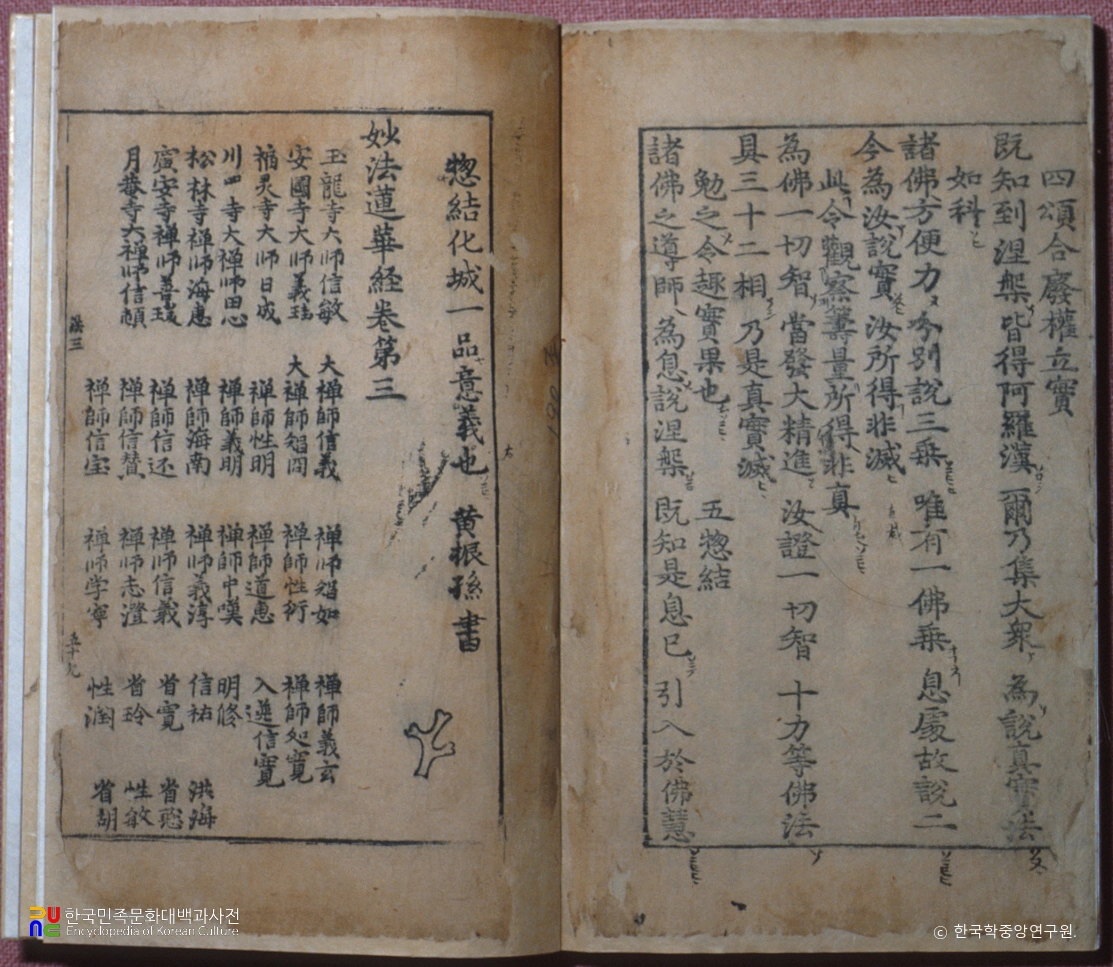 四頌合廢權立實
既知到涅槃 皆得阿羅漢 爾乃集大衆 為說真實法
如科
諸佛方便力 分別說三乘 唯有一佛乘 息處故說二
今為汝說實 汝所得非滅
此令觀察籌量所得非真
為佛一切智 當發大精進 汝證一切智 十力等佛法
具三十二相 乃是真實滅
勉之令趣實果也 五惣結
諸佛之導師 為息說涅槃 既知是息已 引入於佛慧
惣結化城一品意義也 黄振孫書
妙法蓮華経卷第三
玉龍寺大師信敏 大禅師信義 禅师智如 禅師義玄
安國寺大师義瑞 大禅師智閑 禅师性衍 禅師處寛
福灵寺大师日成 禅師性明 禅師道惠 入選信寛
川四寺大禅师思心 禅師義明 禅師中嘆 明修
松林寺禅师海惠 禅師海南 禅师義淳 信祐 洪海
廣安寺禅师善瑞 禅師信还 禅师信義 省寛
月菴寺大禅师信頓 禅師信賛 禅师志澄 省玲 性敏
禅師信宝 禅师学寧 性淵 省胡
法三
五十九
한국민족문화대백과사전
Encyclopedia of Korean Culture
© 한국학중앙연구원.